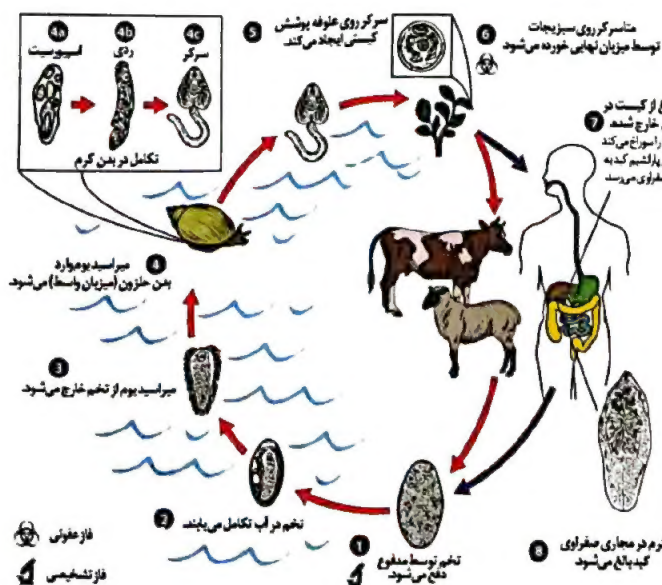 4a
4b
4c
اسپوروسیت
ردی
سرکر
تکامل در بدن کرم
5
سرکر روی علوفه پوشش
کیستی ایجاد می‌کند.
6
متاسرکر روی سبزیجات
توسط میزبان نهایی خورده می‌شود.
7
از کیست در
خارج شده،
را سوراخ می‌کند
پارانشیم کبد به
صفراوی می‌رسد.
4
میراسیدیوم وارد
بدن حلزون (میزبان واسط) می‌شود.
3
میراسیدیوم از تخم خارج می‌شود.
2
تخم در آب تکامل می‌یابند.
1
تخم توسط مدفوع
دفع می‌شود.
8
کرم در مجاری صفراوی
کبد بالغ می‌شود.
فاز عفونی
فاز تشخیصی